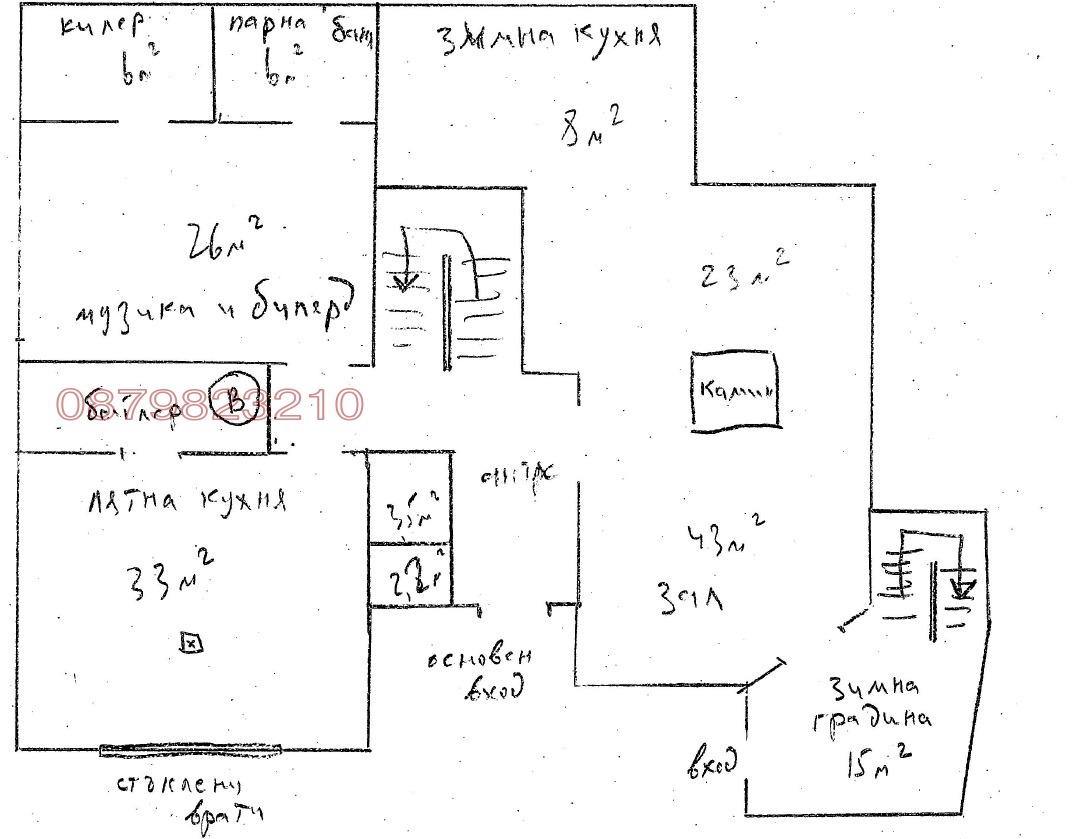 килер
6м²
парна баня
6м²
зимна кухня
8м²
26м²
музика и билярд
23м²
Камин
0879823210
бойлер
В
лятна кухня
33м²
x
3,5м²
антре
43м²
зал
основен
вход
зимна
градина
15м²
вход
стъклени
врати